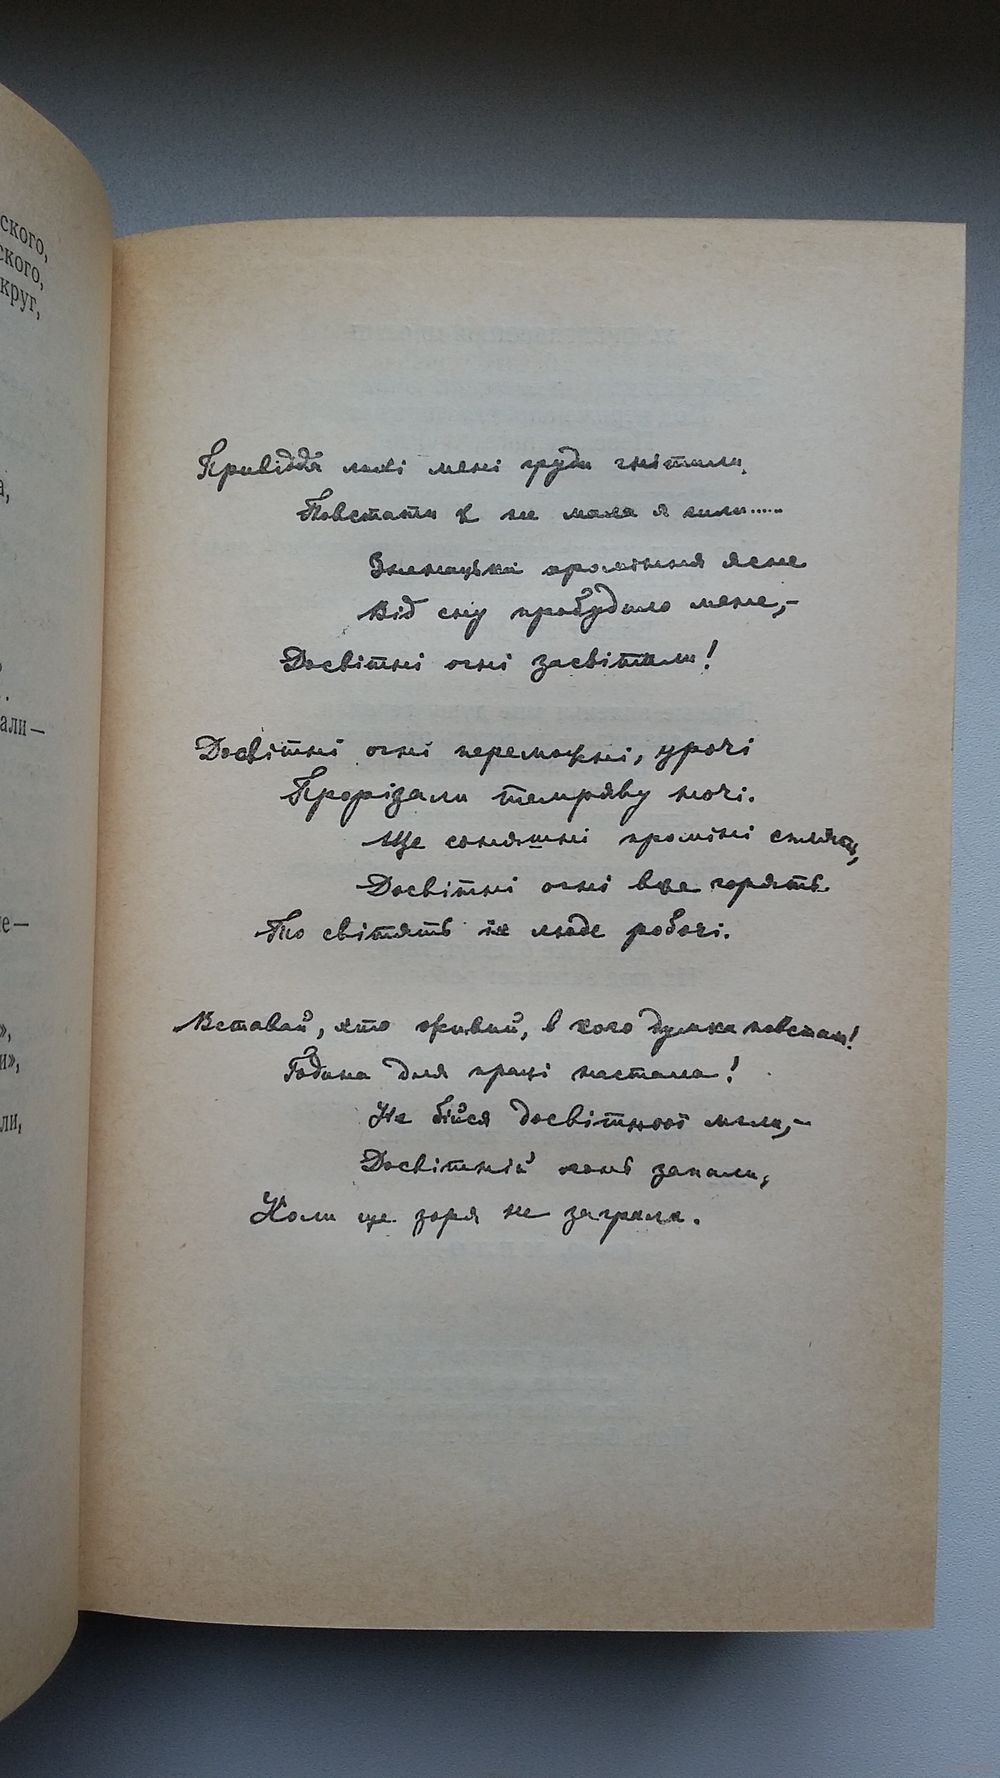 ского,
ского,
круг,
а,
али —
е —
»,
и»,
ли,
Привіддя лихі мені груди гнітили,
Повстати ж не мала я сили......
Зненацька проміння ясне
Від сну пробудило мене,—
Досвітні огні засвітили!
Досвітні огні переможні, урочі
Прорізали темряву ночі.
Ще сонячні проміні сплять,
Досвітні огні вже горять.
То світять їх люде робочі.
Вставай, хто живий, в кого думка повстала!
Година для праці настала!
Не бійся досвітньої мли,—
Досвітній огонь запали,
Коли ще зоря не заграла.